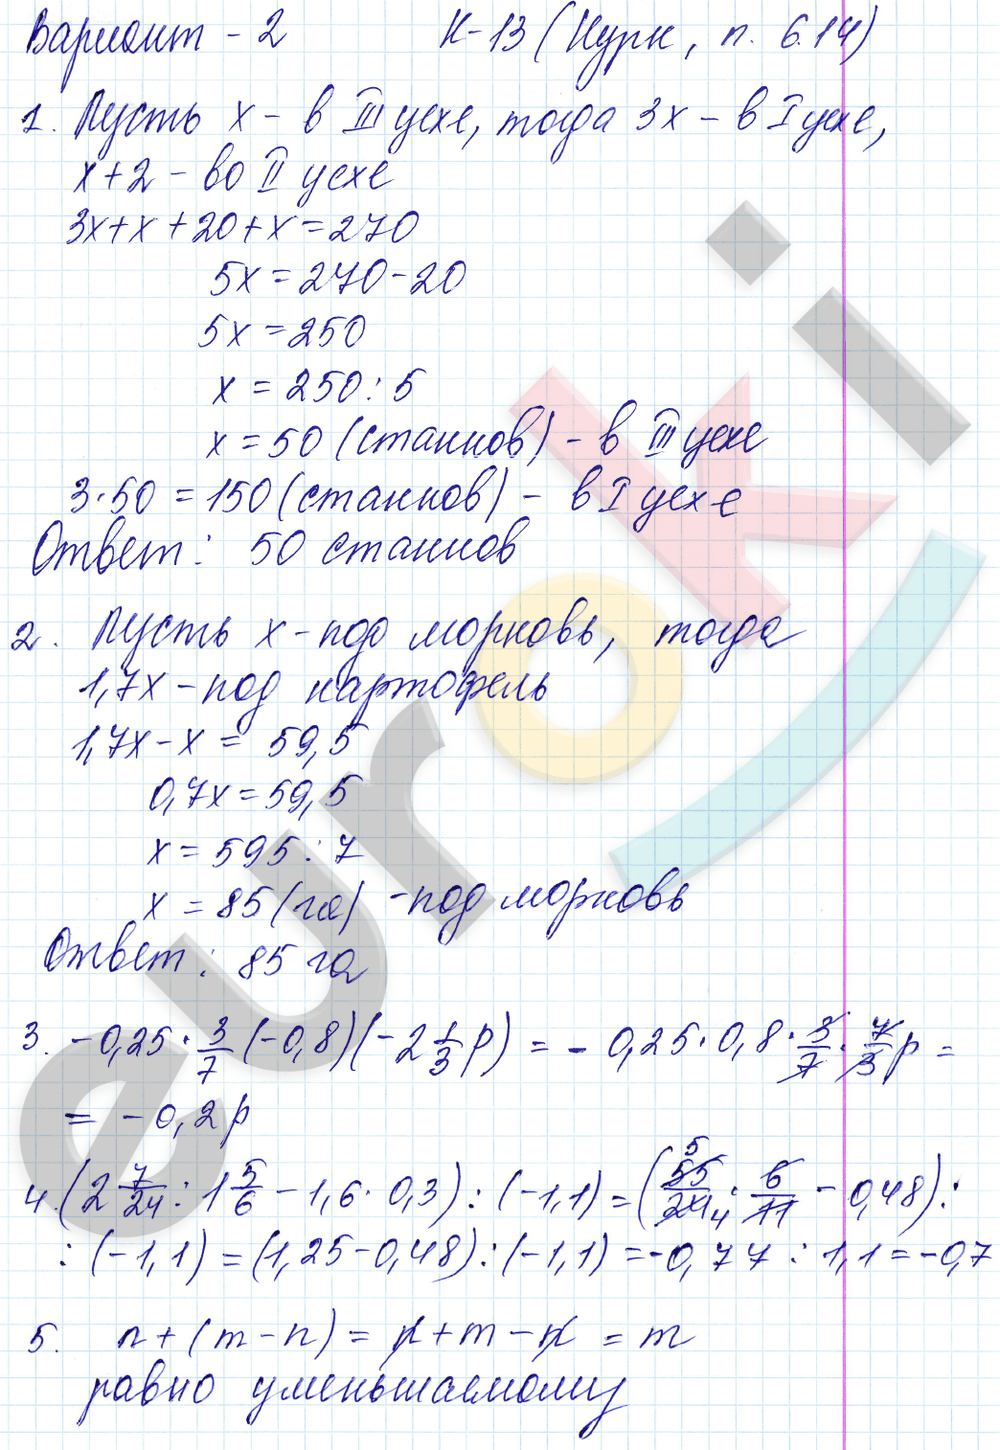 Вариант - 2 К-13 (Нурк, п. 6.14)
1. Пусть x - в III цехе, тогда 3x - в I цехе,
x+2 - во II цехе
3x+x+20+x=270
5x=270-20
5x=250
x=250:5
x=50 (станков) - в III цехе
3·50=150 (станков) - в I цехе
Ответ: 50 станков
2. Пусть x - под морковь, тогда
1,7x - под картофель
1,7x-x = 59,5
0,7x=59,5
x=595:7
x=85 (га) - под морковь
Ответ: 85 га
3. -0,25·3/7(-0,8)(-2 1/3 p) = -0,25·0,8·3/7·7/3 p =
= -0,2p
4. (2 7/24 : 1 5/6 - 1,6·0,3) : (-1,1) = (55 5/24 4 · 6/11 - 0,48) :
: (-1,1) = (1,25-0,48) : (-1,1) = -0,77 : 1,1 = -0,7
5. n+(m-n) = n+m-n = m
равно уменьшаемому
euroki